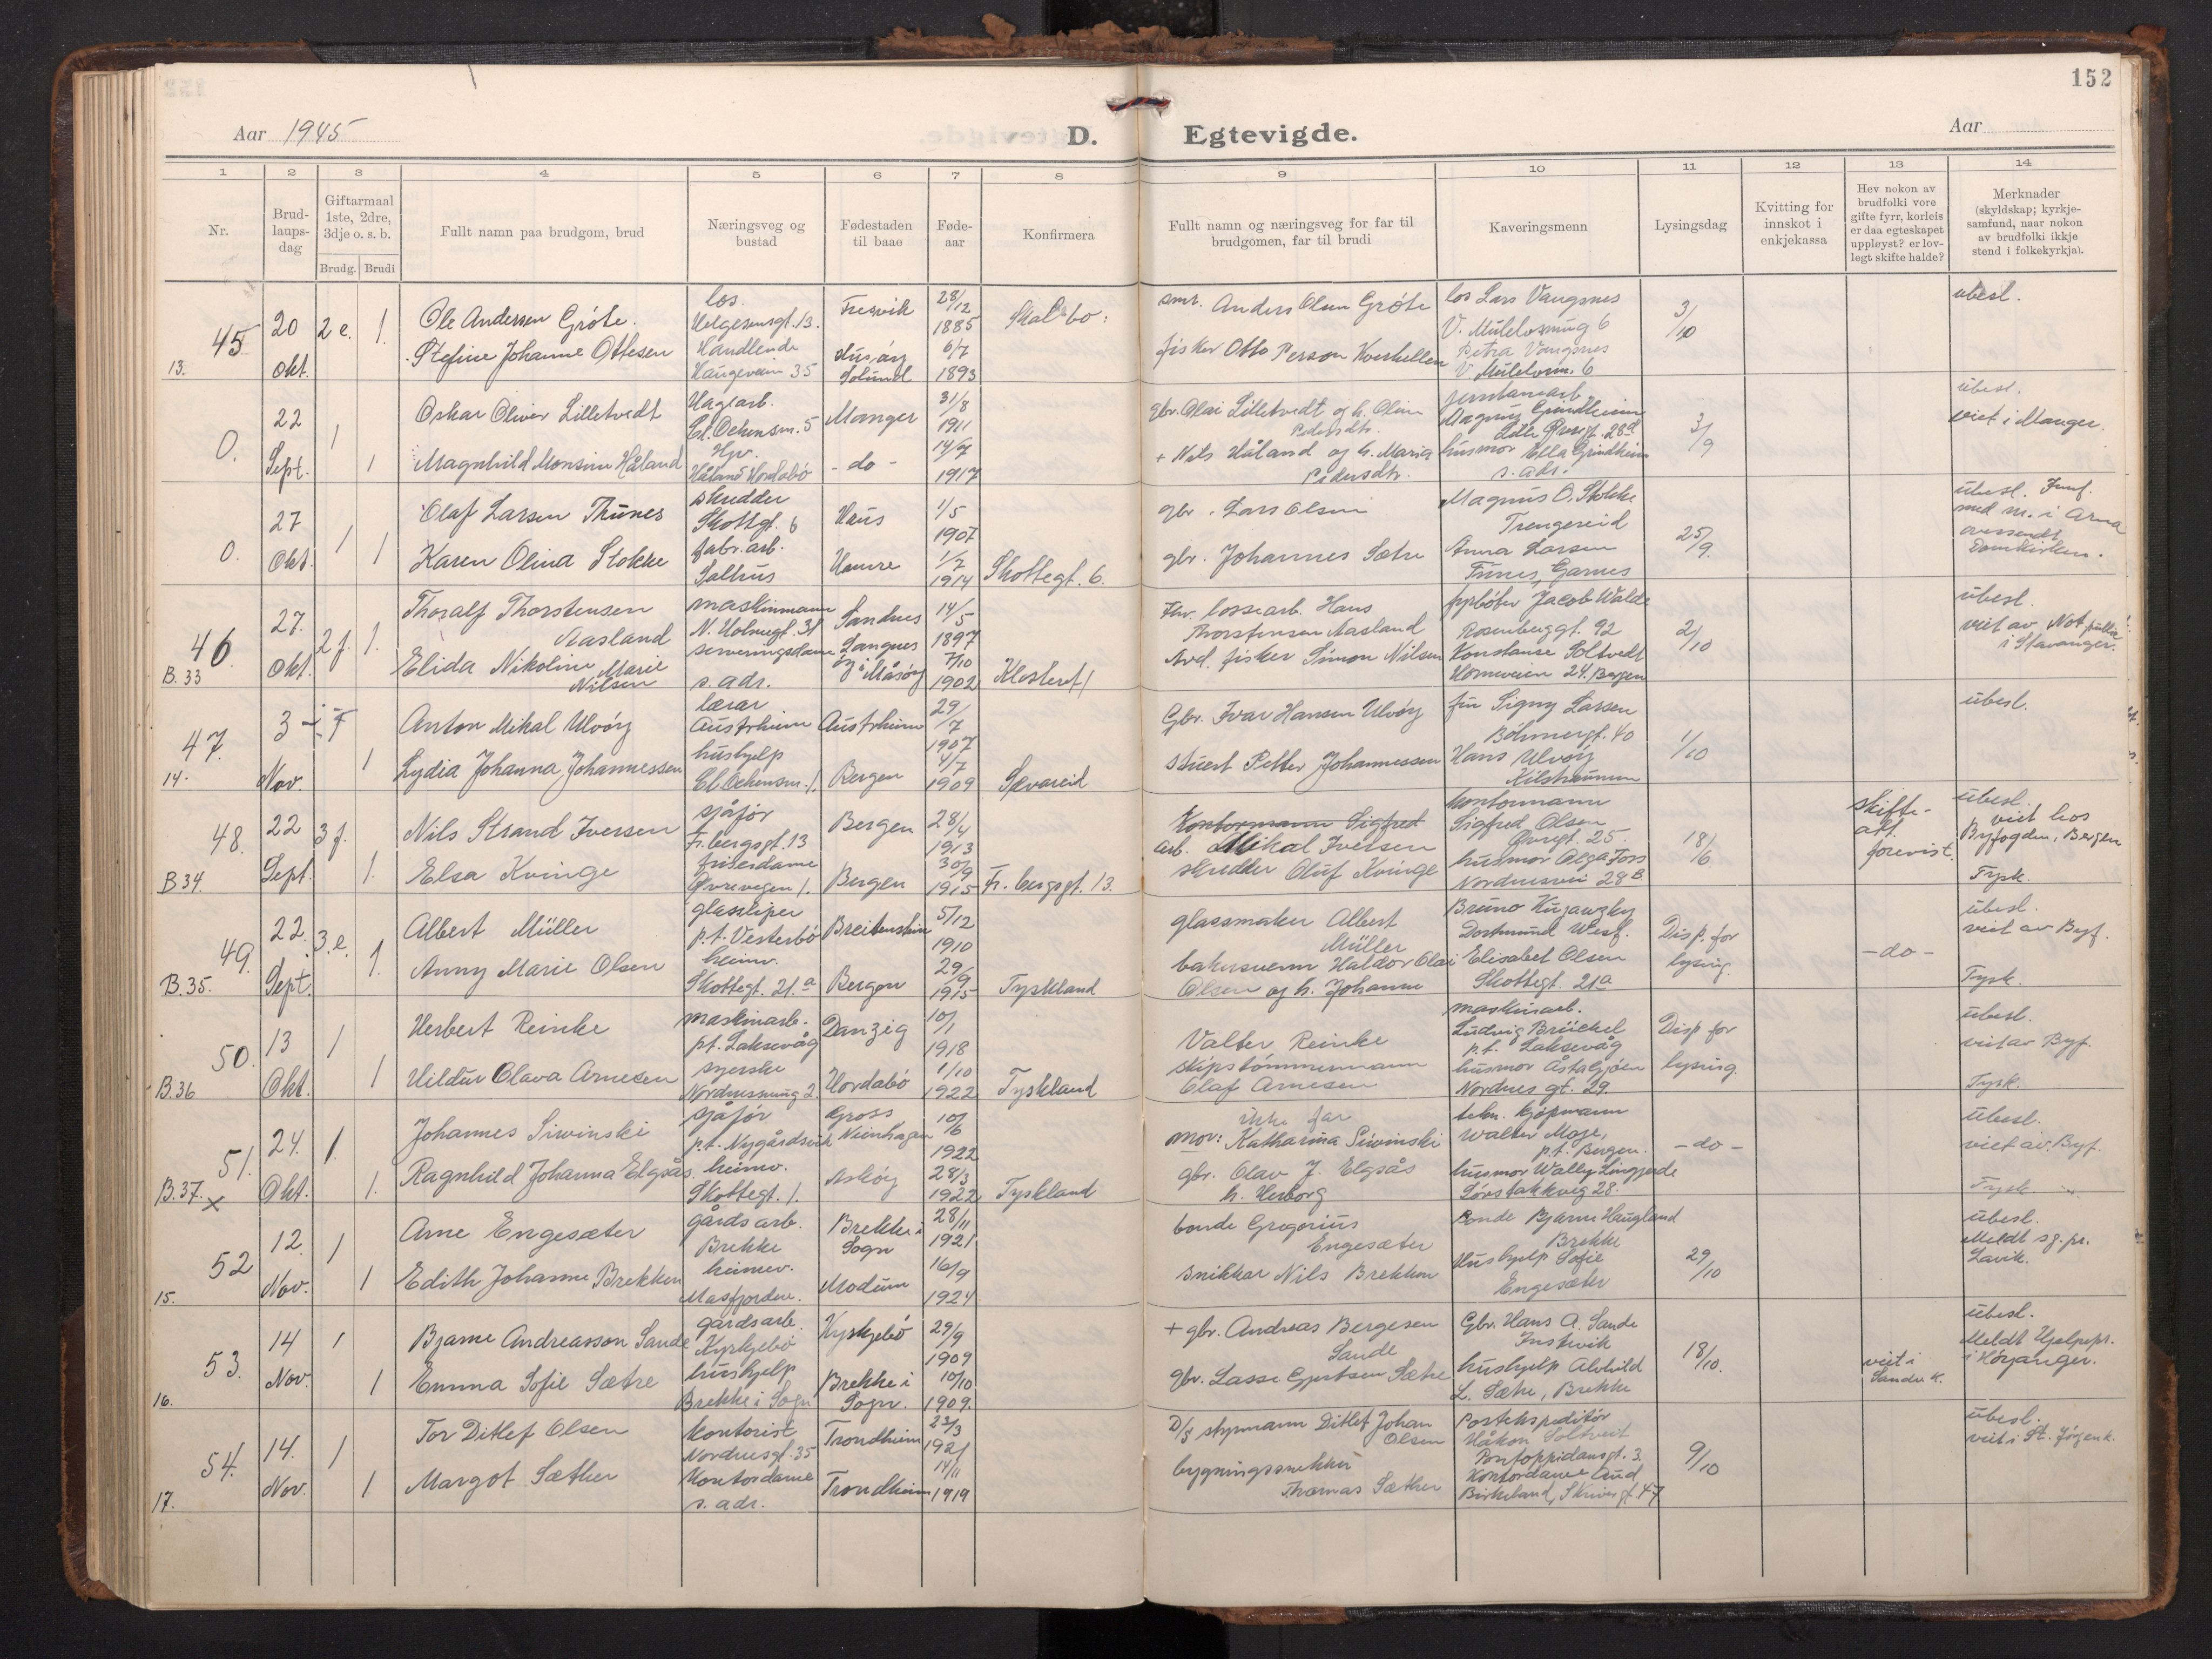 152
Aar 1945
D. Egtevigde.
Aar
1 2 3 4 5 6 7 8 9 10 11 12 13 14
Nr.
Brud-
laups-
dag
Giftarmaal
1ste, 2dre,
3dje o. s. b.
Brudg. Brudi
Fullt namn paa brudgom, brud
Næringsveg og
bustad
Fødestaden
til baae
Føde-
aar
Konfirmera
Fullt namn og næringsveg for far til
brudgomen, far til brudi
Kaveringsmenn
Lysingsdag
Kvitting for
innskot i
enkjekassa
Hev nokon av
brudfolki vore
gifte fyrr, korleis
er daa egteskapet
uppløyst? er lov-
legt skifte halde?
Merknader
(skyldskap; kyrkje-
samfund, naar nokon
av brudfolki ikkje
stend i folkekyrkja).
45
13.
20
Okt.
2 e. 1.
Ole Andersen Gróte.
Stefine Johanne Ottesen
los.
Helgesensgt. 13.
Handlende
Haugeveien 35
Fresvik
Husøy
Solund
28/12
1885
6/7
1893
Skal bo:
smr. Anders Olsen Gróte
fisker Otto Person Kverhellen
los Lars Vangsnes
V. Mülelosmug 6
Petra Vangsnes
V. Mülelosm. 6
3/10
ubesl.
0.
22
Sept.
1
1
Oskar Oliver Lilletvedt
Magnhild Monsine Håland
Hagearb.
Cl. Ockensm. 5
Hv.
Håland Hordabø
Manger
- do -
31/8
1911
14/7
1917
gbr. Olai Lilletvedt og h. Oline
Pedersdtr.
+ Nils Håland og h. Maria
Pedersdtr.
jernbanearb
Magnus Grindheim
husmor Ella Grindheim
s. adr.
3/9
übesl.
viet i Manger.
0.
27
Okt.
1
1
Olaf Larsen Thunes
Karen Olina Stokke
skredder
Skottgt. 6
fabr. arb.
Salhus
Haus
Hamre
1/5
1907
1/7
1914
Skottegt. 6.
gbr. Lars Olsen
gbr. Johannes Sætre
Magnus O. Stokke
Trengereid
Anna Larsen
Tunes, Garnes
25/9.
übesl. Junf.
med m. i Arna
oversendt
Domkirken.
46
B. 33
27.
Okt.
2 f. 1.
Thoralf Thorstensen
Aasland
Elida Nikoline Marie
Nilsen
maskinmann
N. Holmegt. 31
serveringsdame
s. adr.
Sandnes
Langnes
i Måsøy
14/5
1897
7/10
1902
Klosteret 1
Fhv. lossearb. Hans
Thorstensen Aasland
Avd. fisker Simon Nilsen
fyrbøter Jacob Walde
Rosenberggt. 92
Konstanse Soltvedt
Horneveien 24. Bergen
2/10
übesl.
viet av Not. publ.
i Stavanger.
47.
14.
3
Nov.
1
Anton Mikal Ulvöy
Lydia Johanna Johannessen
lærar
Austrheim
hushjelp
Cl. Ockensm. 1.
Austrheim
Bergen
29/7
1907
4/7
1909
Sævareid
Gbr. Ivar Hansen Ulvöy
stuert Petter Johannessen
frü Signy Larsen
Böhmergt. 40
Hans Ulvöy
Kilstraumen
1/10
übesl.
48.
B 34.
22
Sept.
3 f.
1.
Nils Strand Iversen
Elsa Kvinge
sjåför
Fr. bergsgt. 13
friserdame
Øvrevegen 1.
Bergen
Bergen
28/4
1913
30/9
1915
Fr. bergsgt. 13.
Kontormann Sigfred
arb. Mikal Iversen
skredder Oluf Kvinge
kontormann
Sigfred Olsen
Øvregt. 25
husmor Olga Foss
Nordnesvei 28 B
18/6
skifte-
att.
forevist.
übesl.
viet hos
Byfogden, Bergen
Tysk.
49.
B. 35.
22.
Sept.
3. e.
1.
Albert Müller
Anny Marie Olsen
glassliper
p.t. Vesterbö
heimv.
Skottegt. 21. a
Breitenstein
Bergen
5/12
1910
29/9
1915
Tyskland
glassmaker Albert
Müller
bakersvenn Haldor Olai
Olsen og h. Johanne
Bruno Kuzawzky
Dortmund Westf.
Elisabet Olsen
Skottegt. 21a
Disp. for
lysing.
- do -
übesl.
viet av Byf.
Tysk.
50.
B. 36
13
Okt.
1
1
Herbert Reinke
Hildur Olava Arnesen
maskinarb.
pt. Laksevåg
syerske
Nordnessmug 2.
Danzig
Hordabø
10/1
1918
1/10
1922
Tyskland
Valter Reinke
skipstömmermann
Olaf Arnesen
maskinarb.
Ludvig Brückel
p.t. Laksevåg
husmor Åsta Gjøen
Nordnesgt. 29.
Disp for
lysing.
übesl.
viet av Byf.
Tysk.
51.
B. 37. x
24.
Okt.
1.
1.
Johannes Siwinski
Ragnhild Johanna Elgsås.
sjåför
p.t. Nygårdsvik
heimv.
Skottegt. 1.
Gross
Neinhagen
Askøy
10/6
1922
28/3
1922
Tyskland
ikke far
mor: Katharina Siwinski
gbr. Olav J. Elgsås
h. Herborg
tekn. kjøpmann
Walter Moje,
p.t. Bergen.
husmor Wally Lingjerde
Lövstakkveg 28.
- do -
übesl.
viet av Byf.
Tysk
52
15.
12.
Nov.
1
1
Arne Engesæter
Edith Johanne Brekken
gårdsarb.
Brekke
heimev.
Masfjorden.
Brekke i
Sogn
Modum
28/11
1921
16/9
1924
bonde Gregorius
Engesæter
snikkar Nils Brekken
Bonde Bjarne Haugland
Brekke
Hushjelp Sofie
Engesæter
29/10
übesl.
Meldt sg. pr.
Lavik.
53.
16.
14
Nov.
1
1
Bjarne Andreasson Sande
Emma Sofie Sætre
gardsarb.
Kyrkjebö
hushjelp
Brekke i Sogn
Kyrkjebö
Brekke i
Sogn.
29/9
1909
10/10
1909.
+ gbr. Andreas Bergesen
Sande
gbr. Lasse Gjertsen Sætre
Gbr. Hans A. Sande
Instevik
hushjelp Alvhild
L. Sætre, Brekke
18/10.
viet i
Sandv. K.
übesl.
Meldt Hjelpepr.
i Høyanger.
54.
17.
14.
Nov.
1
1
Tor Ditlef Olsen
Margot Sæther
Kontorist
Nordnesgt. 35
Kontordame
s. adr.
Trondheim
Trondheim
23/3
1921
14/11
1919
D/S styrmann Ditlef Johan
Olsen
bygningssnekker
Thomas Sæther
Postekspeditör
Håkon Soltveit
Pontoppidansgt. 3.
Kontordame Aud
Birkeland, Skivesgt. 47
9/10
übesl.
viet i St. Jørgen k.